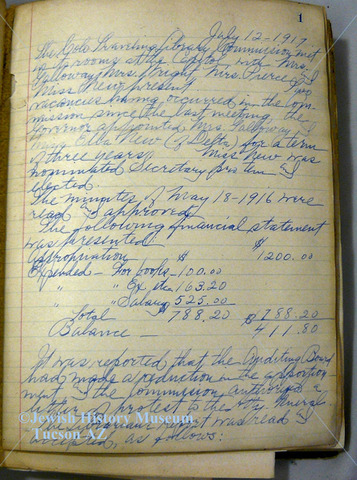 1
July 12-1917
The Colo Traveling Library Commission met
at rooms at the Capitol, with Mrs.
Galloway, Mrs. Wright, Mrs. Pierce &
Miss New present two
vacancies having occurred in the Com-
mission since the last meeting, the
Governor appointed Mrs. Galloway &
Miss Ella New (of Delta) for a term
of three years. Miss New was
nominated Secretary pro tem &
elected.
The minutes of May 18-1916 were
read & approved
The following financial statement
was presented
Appropriation $ $1200.00
Expended - For books - 100.00
" " Ex 163.20
" " Salary 525.00
Total $788.20 $788.20
Balance - 411.80
It was reported that the Auditing Board
had made a reduction in the apportion
ment & the Commission
protest to the
report was read &
accepted, as follows:
© Jewish History Museum
Tucson AZ